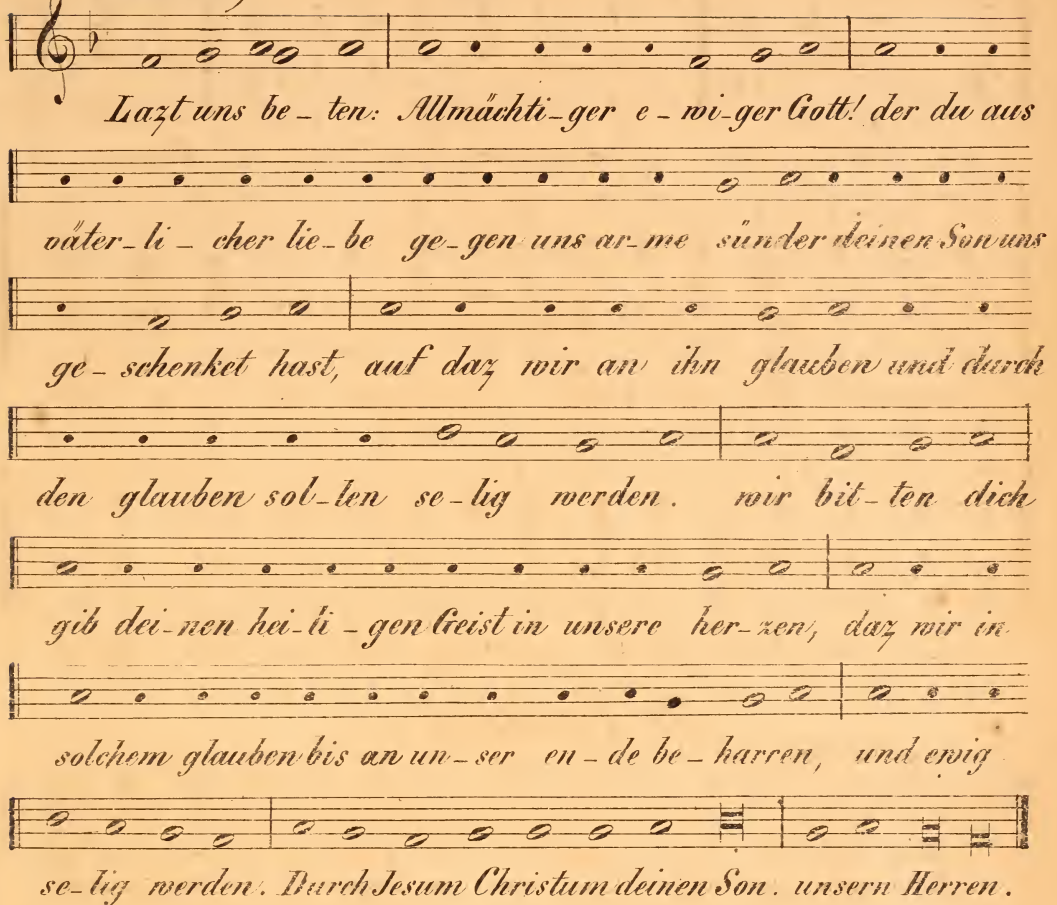 Lazt uns be-ten: Allmächti-ger e-wi-ger Gott! der du aus
väter-li-cher lie-be ge-gen uns ar-me sünder deinen Son uns
ge-schenket hast, auf daz wir an ihn glauben und durch
den glauben sol-len se-lig werden. wir bit-ten dich
gib dei-nen hei-li-gen Geist in unsere her-zen, daz wir in
solchem glauben bis an un-ser en-de be-harren, und ewig
se-lig werden. Durch Jesum Christum deinen Son. unsern Herren.